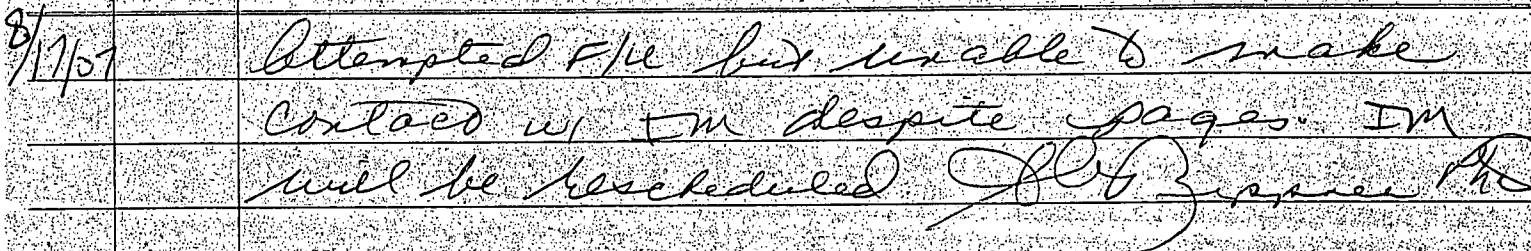 8/17/07 Attempted F/U but unable to make
contact w/ IM despite pages. IM
will be rescheduled PhD